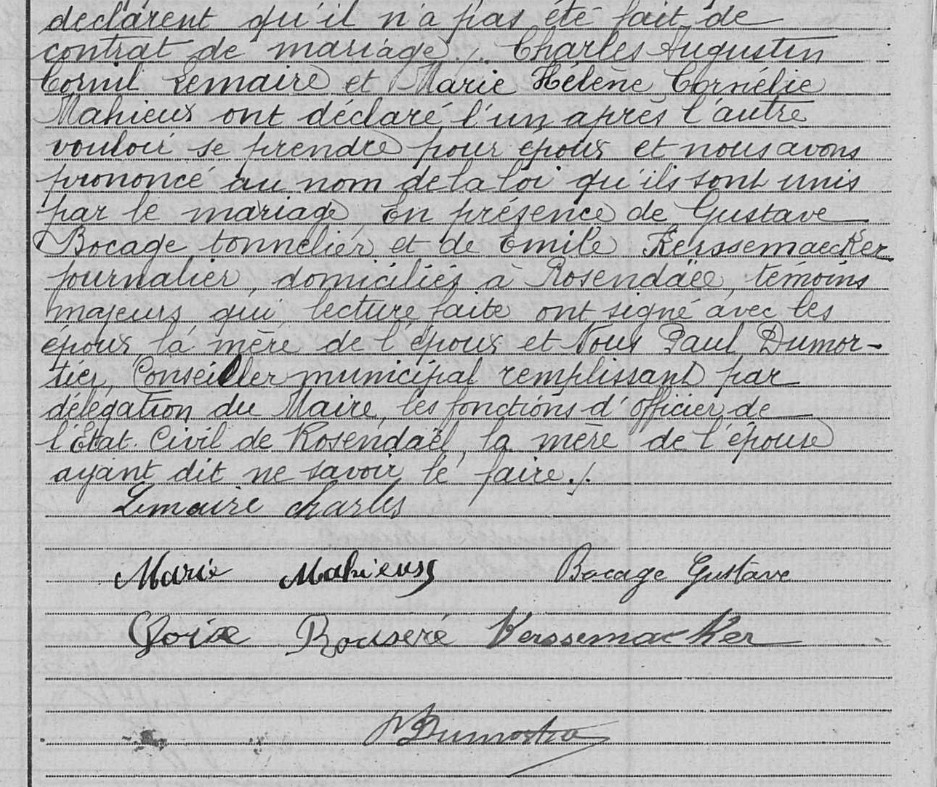 déclarent qu'il n'a pas été fait de
contrat de mariage ./. Charles Augustin
Cornil Lemaire et Marie Hélène Cornélie
Mahieux ont déclaré l'un après l'autre
vouloir se prendre pour époux et nous avons
prononcé au nom de la loi qu'ils sont unis
par le mariage. En présence de Gustave
Bocage tonnelier et de Emile Kerssemaecker
journalier, domiciliés à Rosendaël, témoins
majeurs qui, lecture faite ont signé avec les
époux la mère de l'époux et Nous Paul Dumor-
tier, Conseiller municipal remplissant par
délégation du Maire, les fonctions d'officier de
l'Etat Civil de Rosendaël, la mère de l'épouse
ayant dit ne savoir le faire ./.
Lemaire charles
Marie Mahieux Bocage Gustave
Bouseré Kerssemaecker
PDumortier